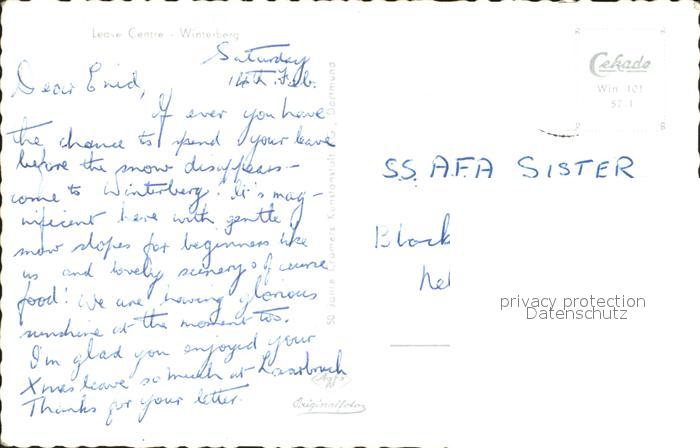 Leave Centre - Winterberg
Saturday
14th Feb.
Dear Enid,
If ever you have
the chance to spend your leave
before the snow disappears -
come to Winterberg! It's mag-
nificent here with gentle
snow slopes for beginners like
us and lovely scenery & of course
food! We are having glorious
sunshine at the moment too.
I'm glad you enjoyed your
Xmas leave so much at
Thanks for your letter.
50 Jahre Cramers Kunstanstalt Dortmund
Agfa
Originalfoto
Cekade
Win 101
57.1
SS.AFA SISTER
Block
privacy protection
Datenschutz